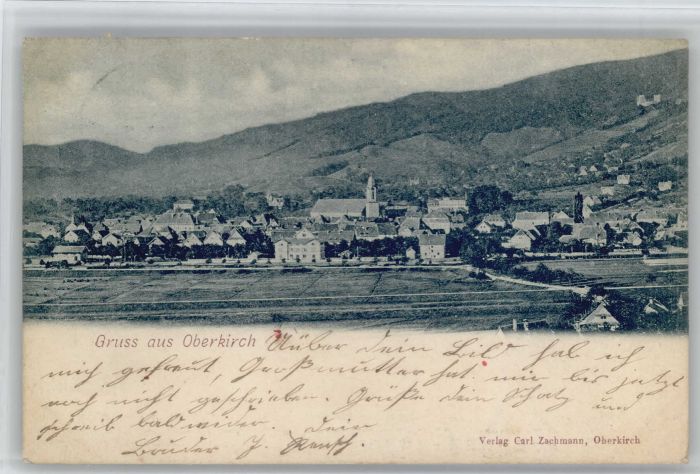 Gruss aus Oberkirch
Über dein Bild hab ich
mich gefreut, Großmutter hat mir bis jetzt
noch nicht geschrieben. Grüße dein Schatz und
schreib bald wider. Dein
Bruder J.
Verlag Carl Zachmann, Oberkirch